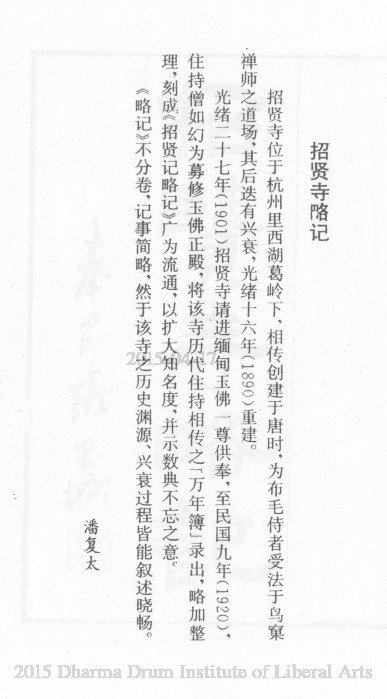 招贤寺略记
招贤寺位于杭州里西湖葛岭下，相传创建于唐时，为布毛侍者受法于鸟窠
禅师之道场，其后迭有兴衰，光绪十六年(1890)重建。
光绪二十七年(1901)招贤寺请进缅甸玉佛一尊供奉，至民国九年(1920)，
住持僧如幻为募修玉佛正殿，将该寺历代住持相传之「万年簿」录出，略加整
理，刻成《招贤记略记》广为流通，以扩大知名度，并示数典不忘之意。
《略记》不分卷，记事简略，然于该寺之历史渊源、兴衰过程皆能叙述晓畅。
潘复太
2015/04/17
2015 Dharma Drum Institute of Liberal Arts